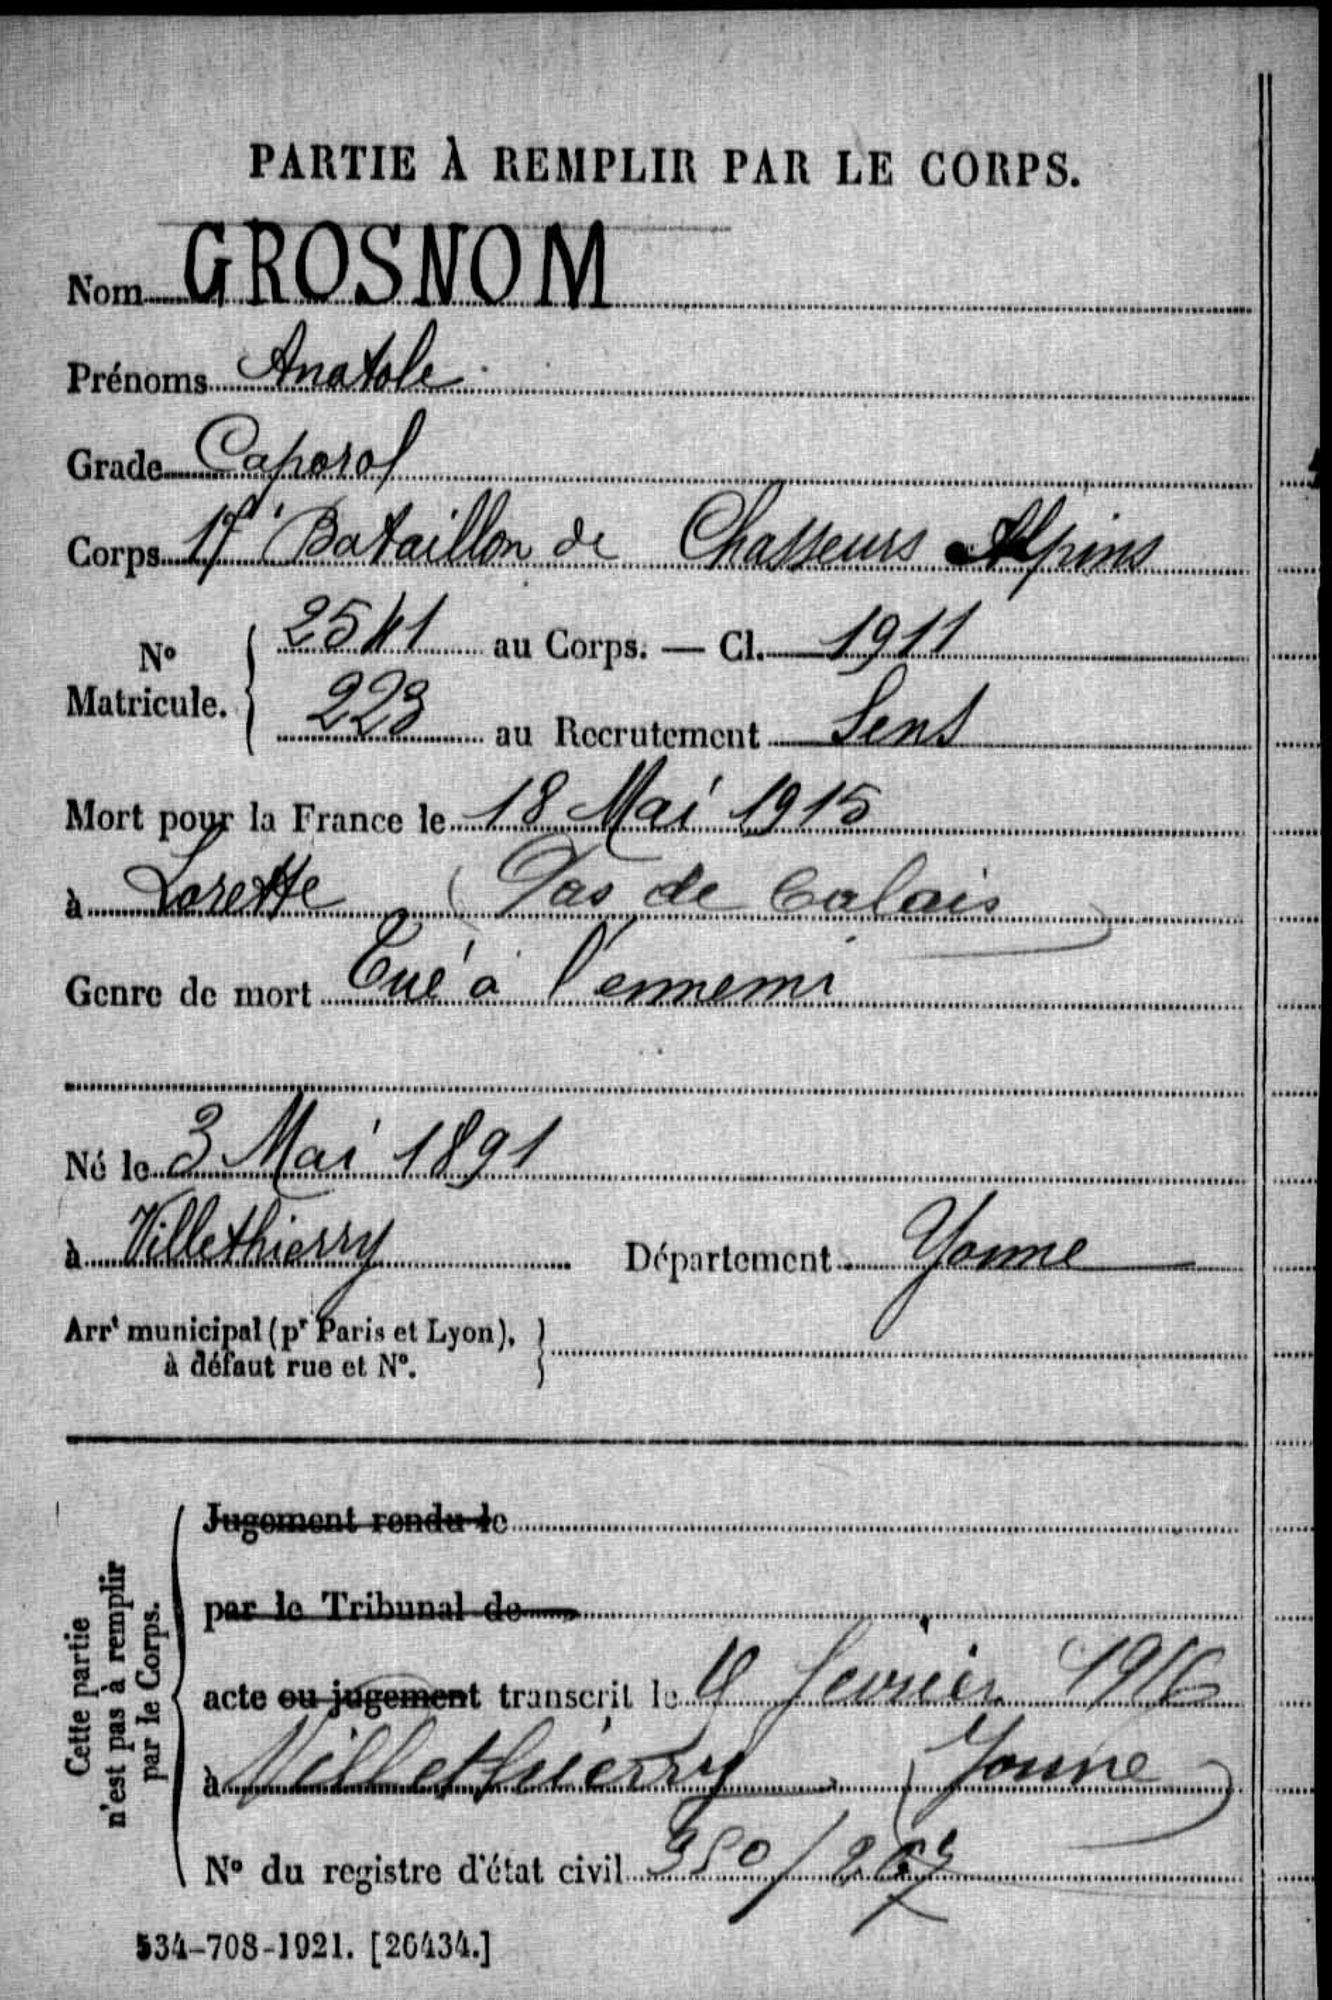 PARTIE À REMPLIR PAR LE CORPS.
Nom GROSNOM
Prénoms Anatole
Grade Caporal
Corps 17e Bataillon de Chasseurs Alpins
No Matricule. { 2541 au Corps. — Cl. 1911
223 au Recrutement Sens
Mort pour la France le 18 Mai 1915
à Lorette (Pas de Calais)
Genre de mort Tué à l'ennemi
Né le 3 Mai 1891
à Villethierry Département Yonne
Arrt municipal (pr Paris et Lyon), }
à défaut rue et No.
Cette partie
n'est pas à remplir
par le Corps.
Jugement rendu le
par le Tribunal de
acte ou jugement transcrit le février 1916
à Villethierry (Yonne)
No du registre d'état civil
534-708-1921. [26434.]